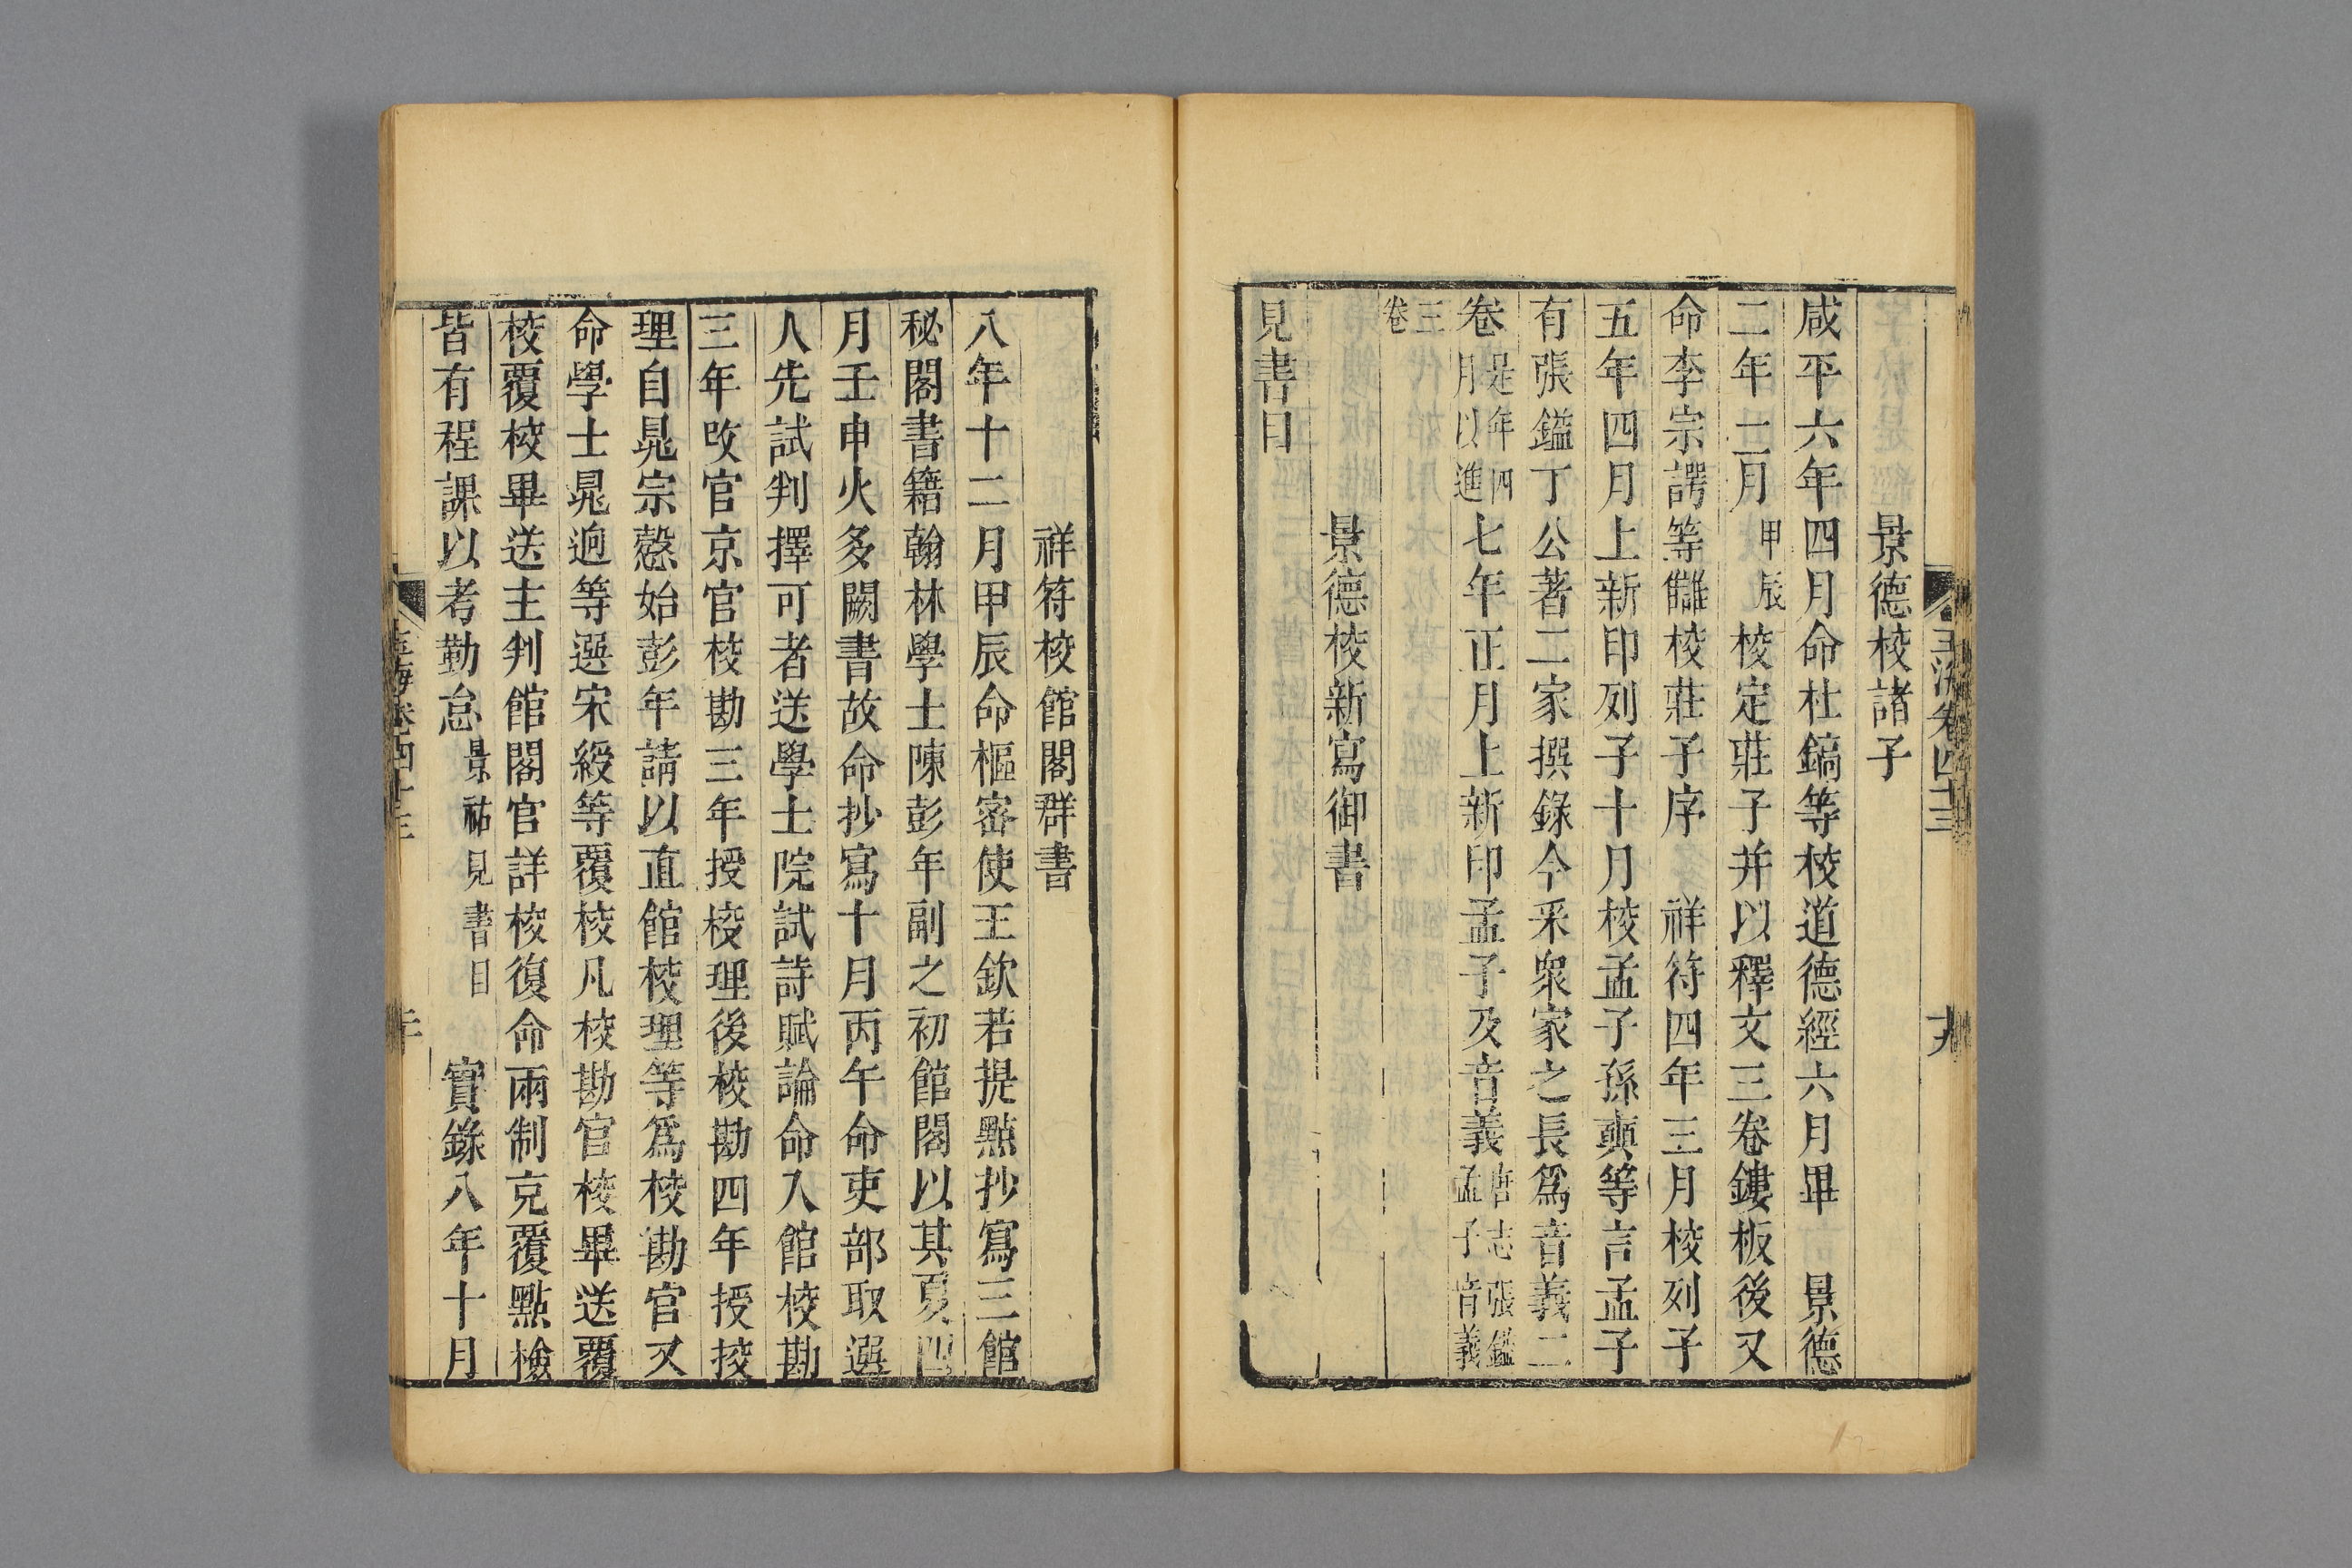 玉海卷四十三
十九
景德校諸子
咸平六年四月命杜鎬等校道德經六月畢　景德
二年二月甲辰校定莊子并以釋文三卷鏤板後又
命李宗諤等讎校莊子序　祥符四年三月校列子
五年四月上新印列子十月校孟子孫奭等言孟子
有張鎰丁公著二家撰錄今采衆家之長爲音義二
卷是年四月以進七年正月上新印孟子及音義唐志張鎰孟子音義
三卷
景德校新寫御書
見書目
祥符校館閣群書
八年十二月甲辰命樞密使王欽若提點抄寫三館
秘閣書籍翰林學士陳彭年副之初館閣以其夏四
月壬申火多闕書故命抄寫十月丙午命吏部取選
人先試判擇可者送學士院試詩賦論命入館校勘
三年改官京官校勘三年授校理後校勘四年授校
理自晁宗慤始彭年請以直館校理等爲校勘官又
命學士晁迥等選宋綬等覆校凡校勘官校畢送覆
校覆校畢送主判館閣官詳校復命兩制克覆點檢
皆有程課以考勤怠景祐見書目　實錄八年十月
玉海卷四十三
二十